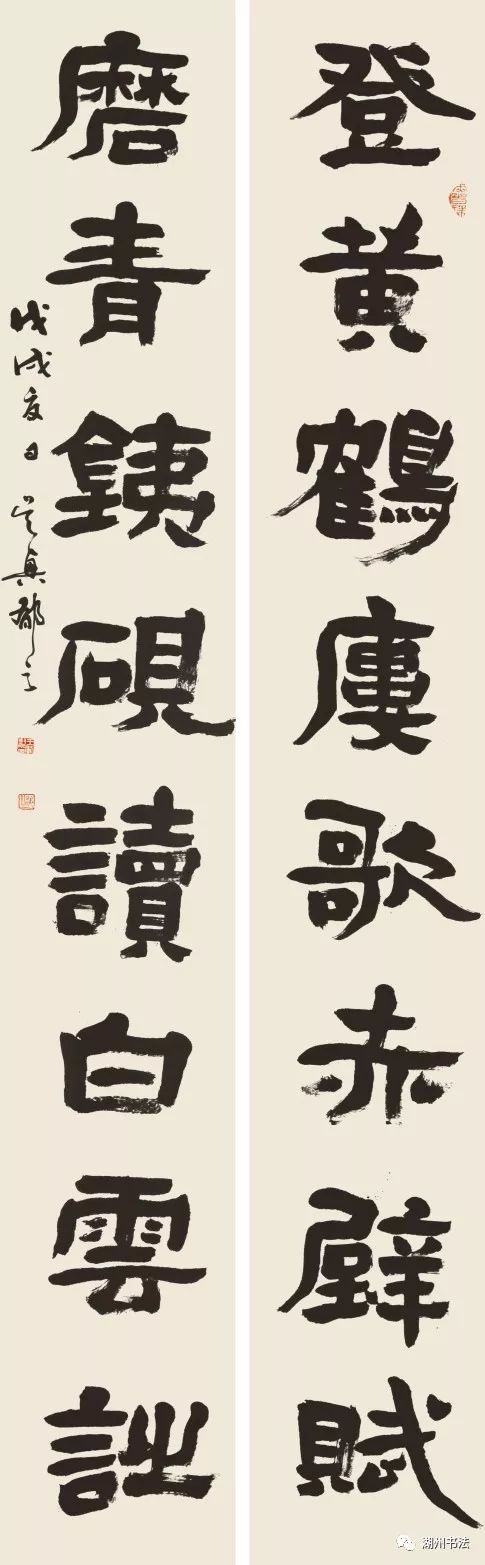 登黄鶴廔歌赤壁賦
磨青銕硯讀白雲詩
戊戌夏日
湖州书法